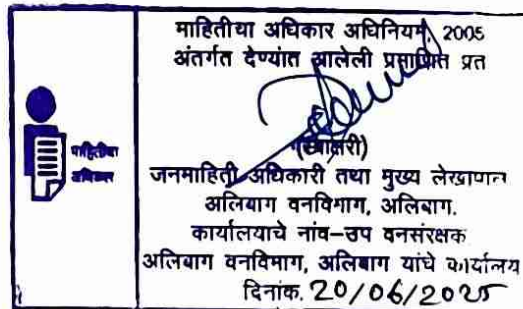 माहितीचा अधिकार अधिनियम, 2005
अंतर्गत देण्यांत आलेली प्रमाणित प्रत
माहितीचा
अधिकार
(स्वाक्षरी)
जनमाहिती अधिकारी तथा मुख्य लेखापाल
अलिबाग वनविभाग, अलिबाग.
कार्यालयाचे नांव-उप वनसंरक्षक
अलिबाग वनविभाग, अलिबाग यांचे कार्यालय
दिनांक. 20/06/2025